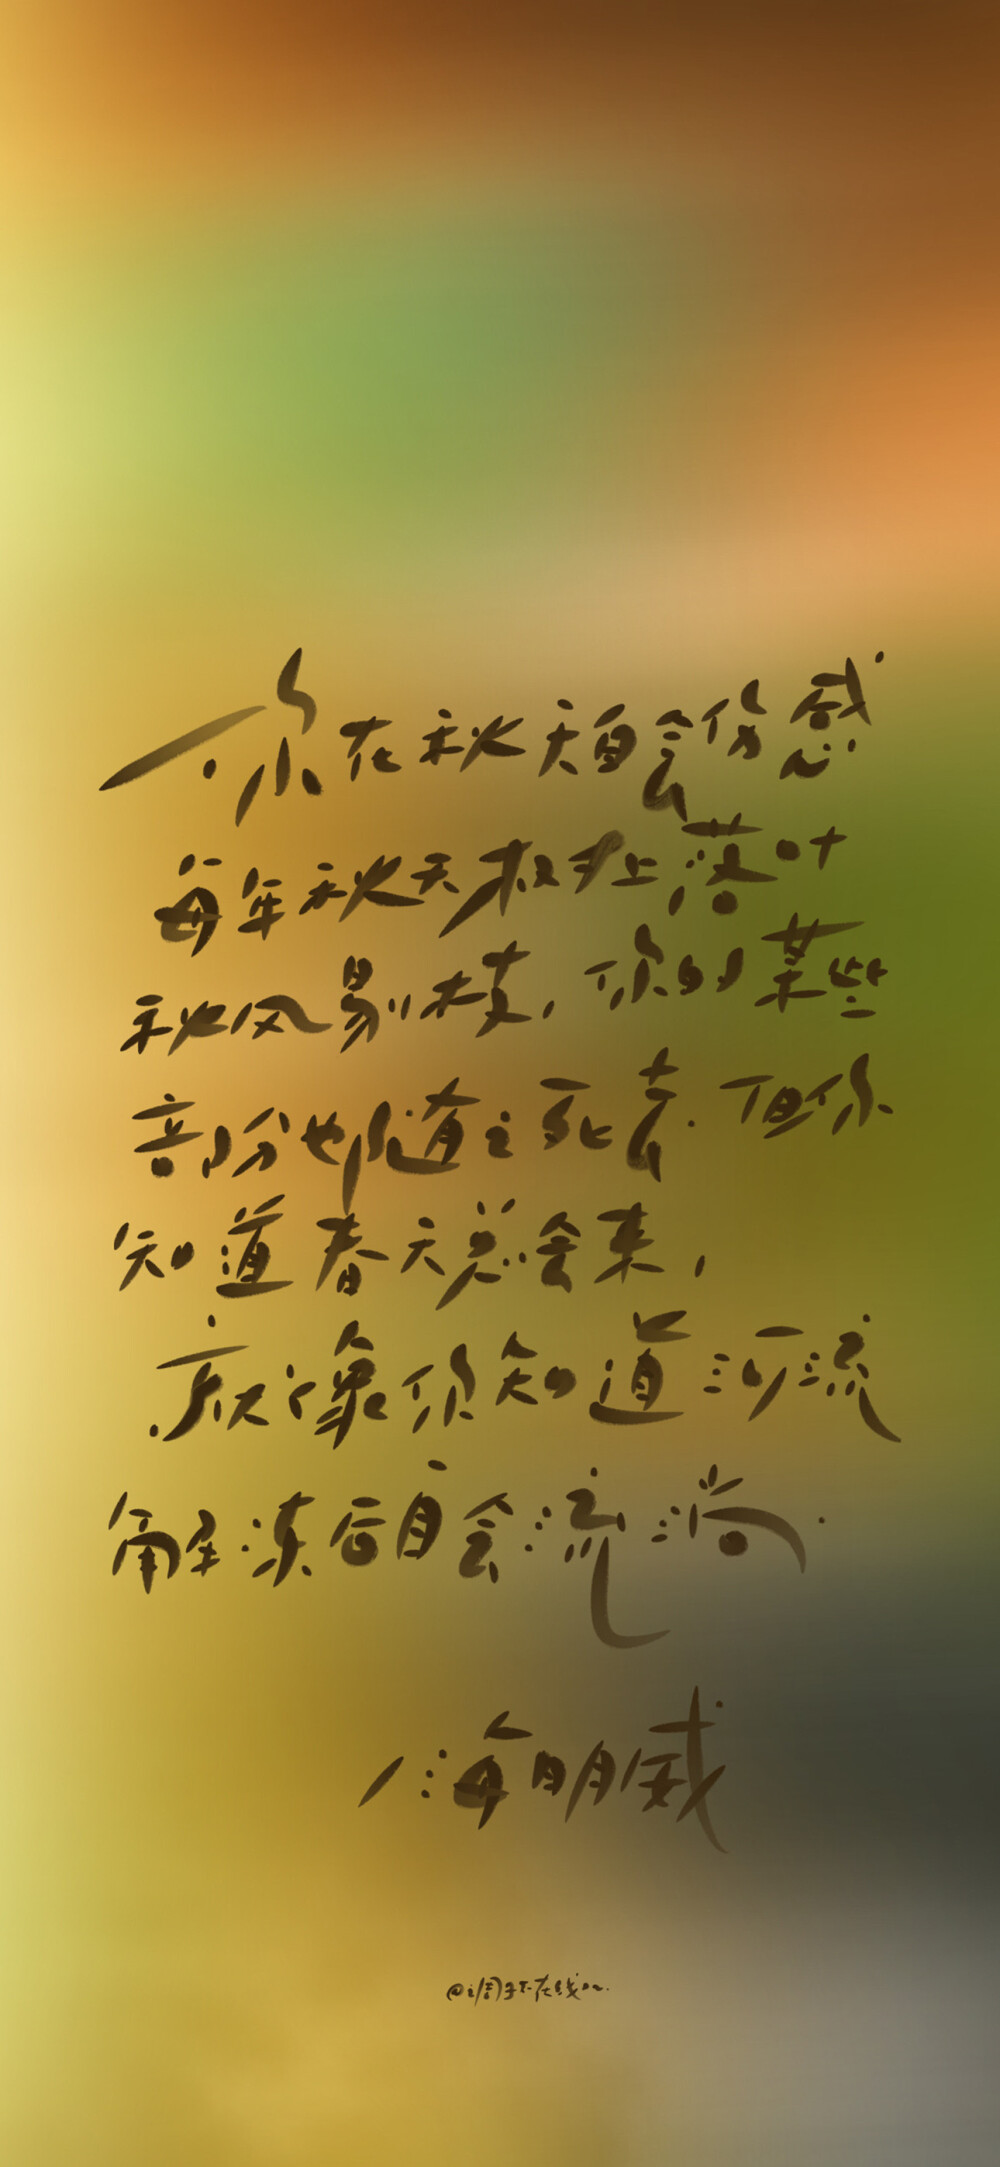 你在秋天自会伤感
每年秋天树上落叶
秋风剔枝,你的某些
部份也随之死去.但你
知道春天总会来,
就像你知道河流
解冻后自会流淌.
/海明威